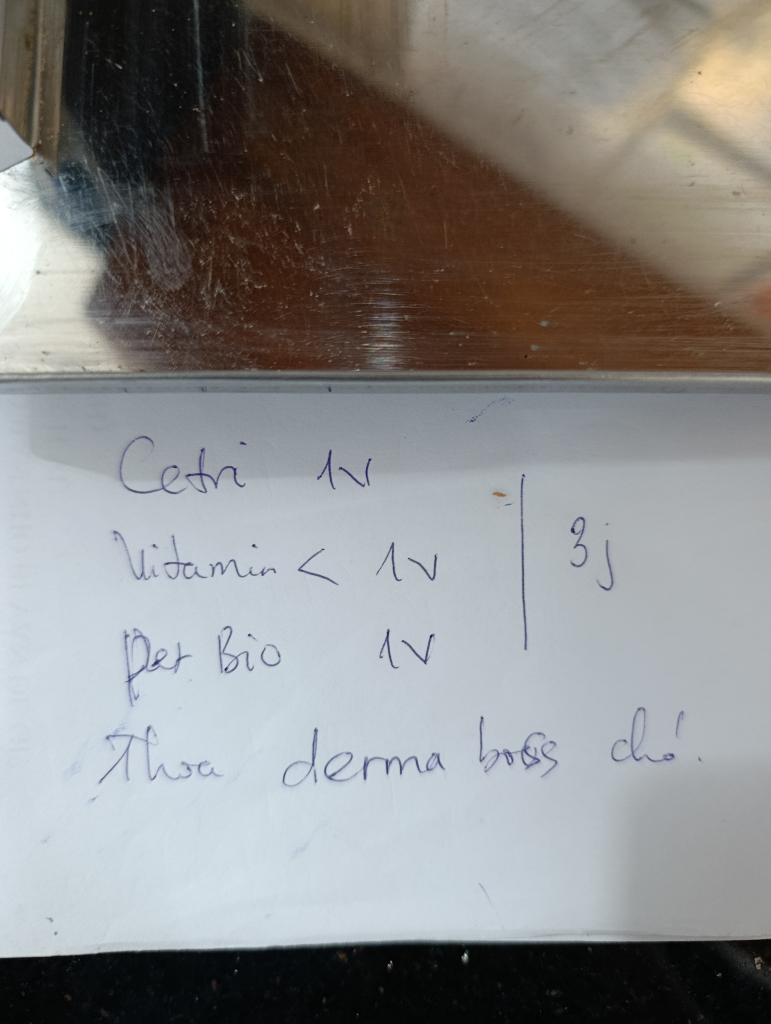 Cetri 1v
Vitamin C 1v
Pet Bio 1v
3j
Thoa derma boss chó.